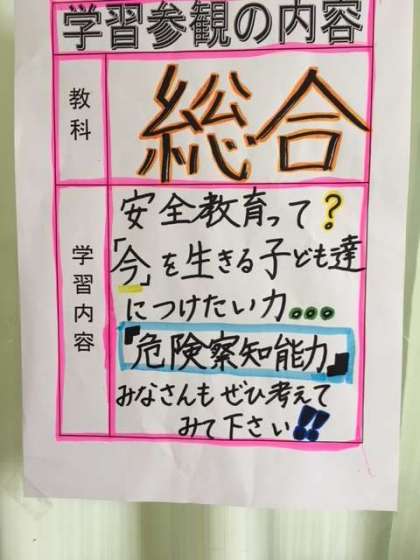 学習参観の内容
教科
総合
学習内容
安全教育って?
「今」を生きる子ども達
につけたい力...
『危険察知能力』
みなさんもぜひ考えて
みて下さい!!